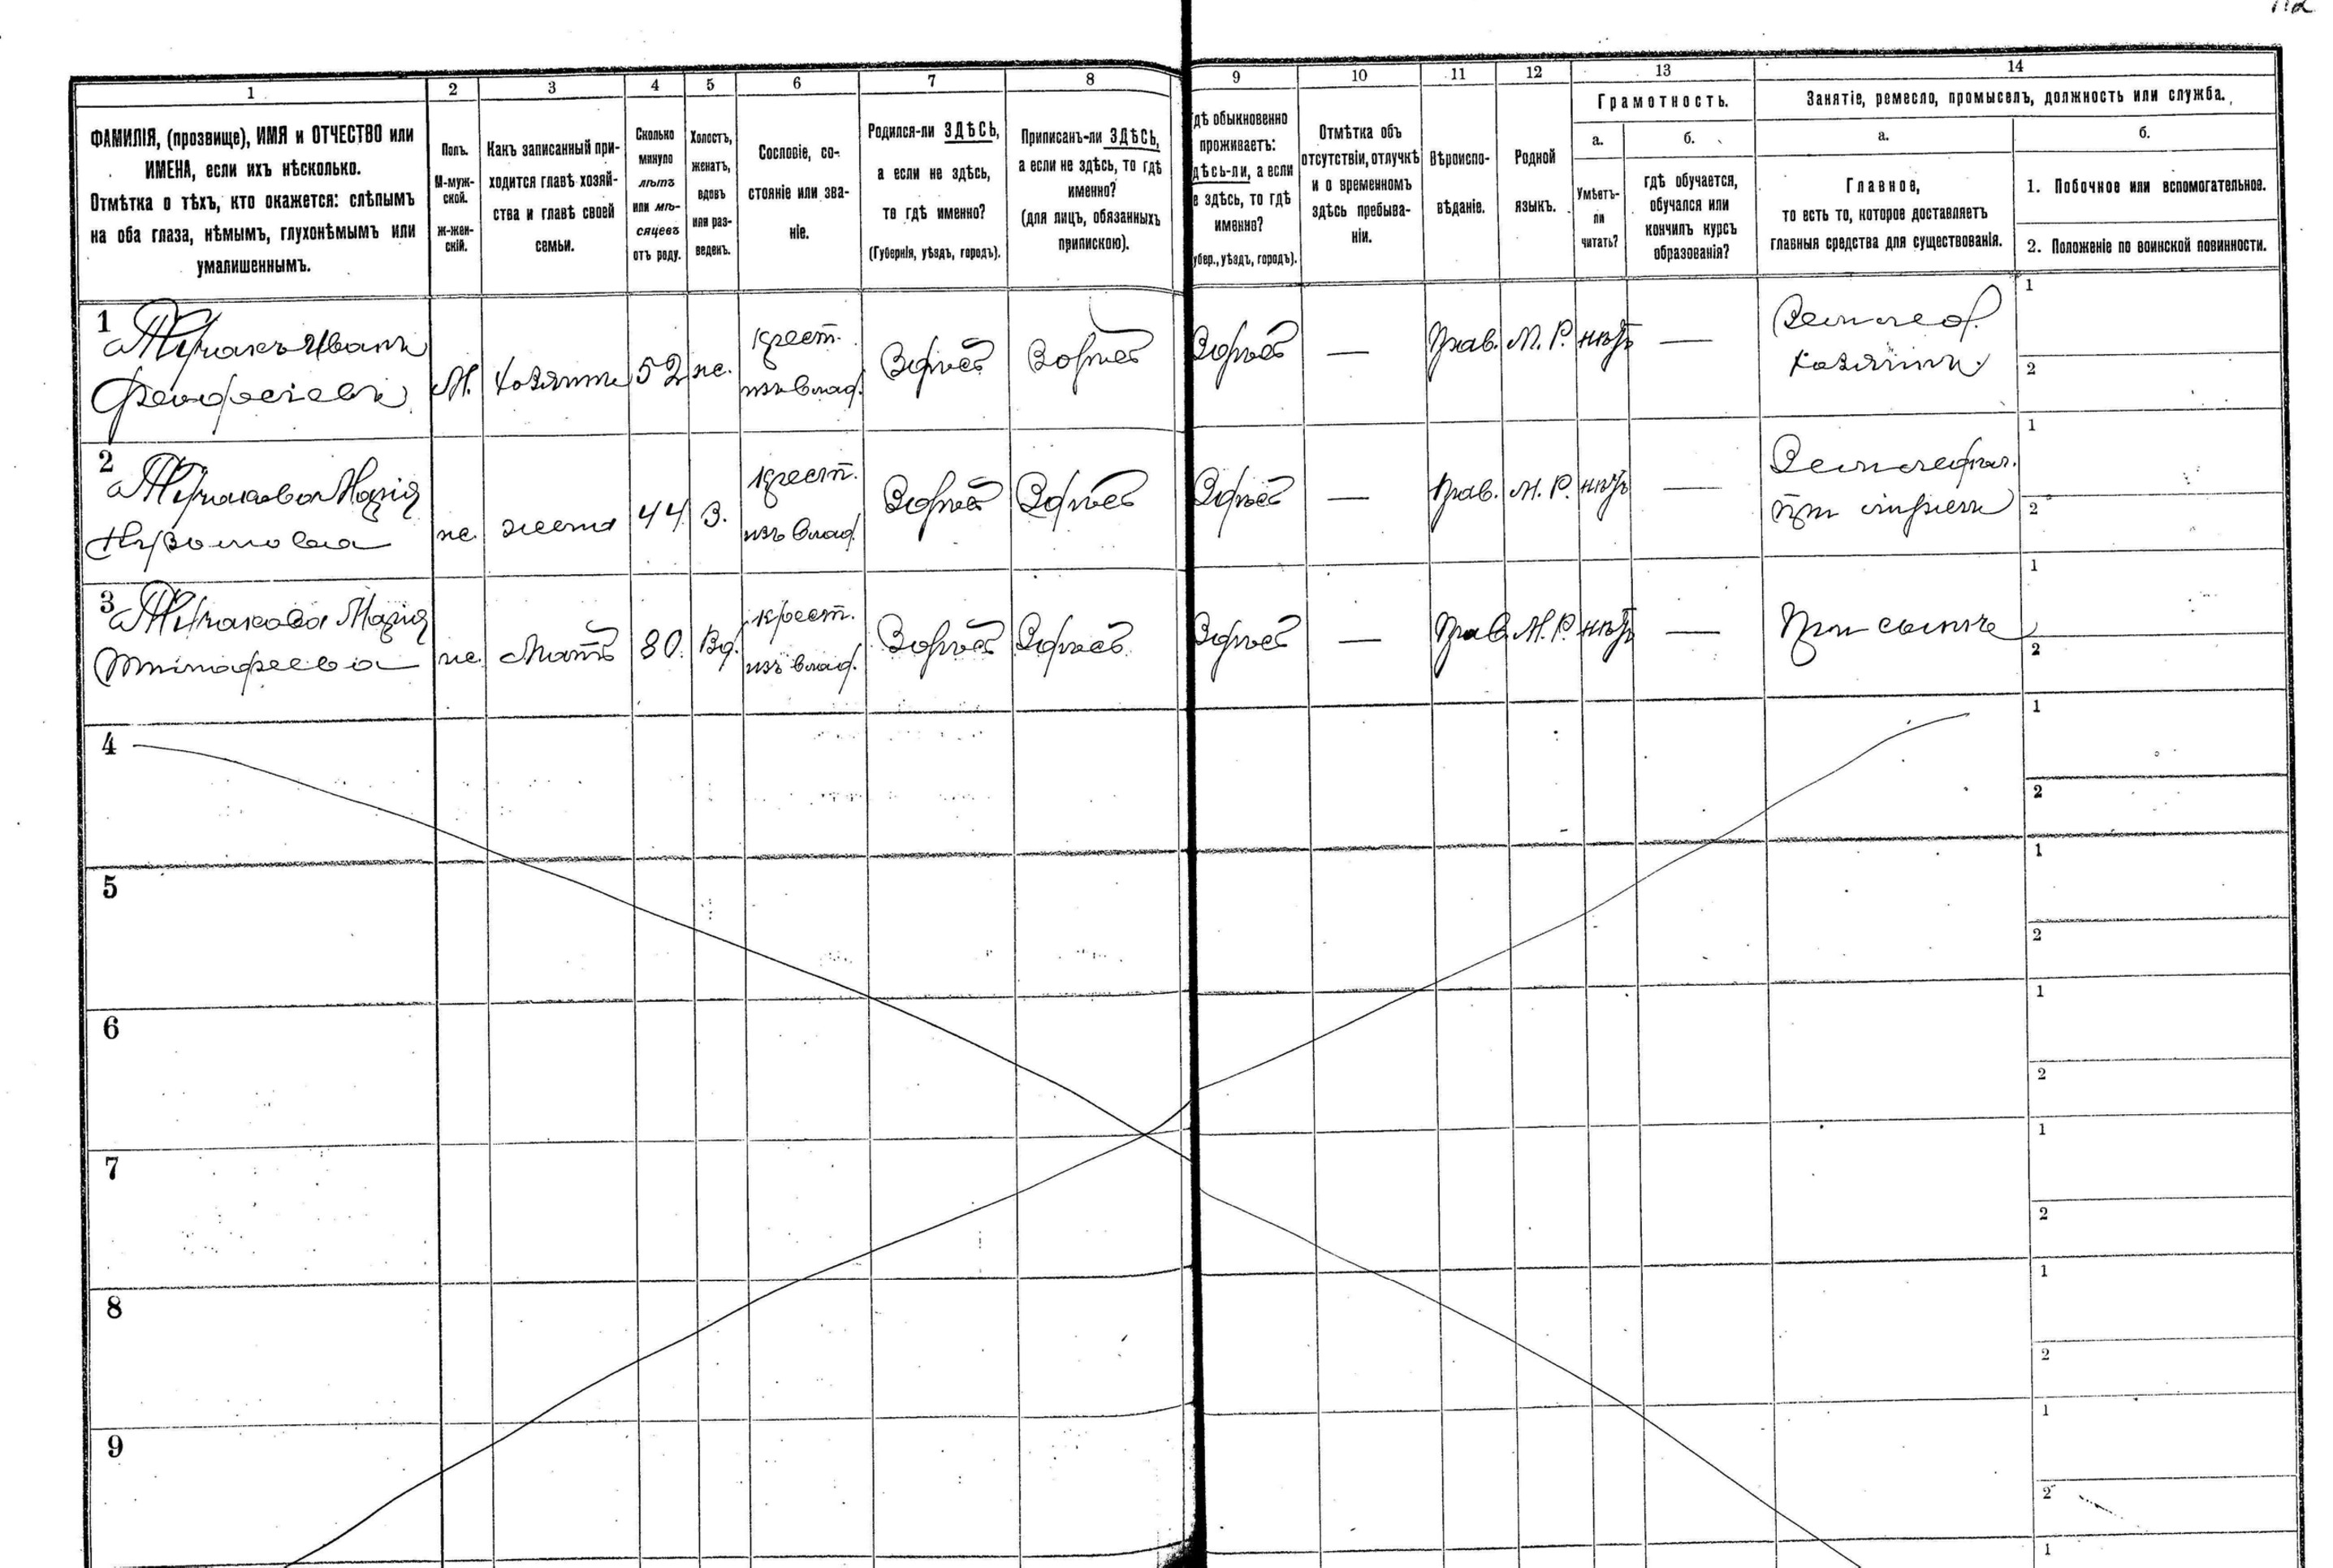 1 2 3 4 5 6 7 8 9 10 11 12 13 14
ФАМИЛІЯ, (прозвище), ИМЯ и ОТЧЕСТВО или
ИМЕНА, если ихъ нѣсколько.
Отмѣтка о тѣхъ, кто окажется: слѣпымъ
на оба глаза, нѣмымъ, глухонѣмымъ или
умалишеннымъ.
Полъ.
М-муж-
ской.
Ж-жен-
скій.
Какъ записанный при-
ходится главѣ хозяй-
ства и главѣ своей
семьи.
Сколько
минуло
лѣтъ
или мѣ-
сяцевъ
отъ роду.
Холостъ,
женатъ,
вдовъ
или раз-
веденъ.
Сословіе, со-
стояніе или зва-
ніе.
Родился-ли ЗДѢСЬ,
а если не здѣсь,
то гдѣ именно?
(Губернія, уѣздъ, городъ).
Приписанъ-ли ЗДѢСЬ,
а если не здѣсь, то гдѣ
именно?
(для лицъ, обязанныхъ
припискою).
дѣ обыкновенно
проживаетъ:
дѣсь-ли, а если
е здѣсь, то гдѣ
именно?
убер., уѣздъ, городъ).
Отмѣтка объ
отсутствіи, отлучкѣ
и о временномъ
здѣсь пребыва-
ніи.
Вѣроиспо-
вѣданіе.
Родной
языкъ.
Грамотность.
а.
Умѣетъ-
ли
читать?
б.
гдѣ обучается,
обучался или
кончилъ курсъ
образованія?
Занятіе, ремесло, промыселъ, должность или служба.
а.
Главное,
то есть то, которое доставляетъ
главныя средства для существованія.
б.
1. Побочное или вспомогательное.
2. Положеніе по воинской повинности.
1
Иванъ
Феодосіевъ
М. хозяинъ 52 ж.
крест.
изъ влад.
Здѣсь Здѣсь Здѣсь — Прав. М. Р. нѣтъ —
Земслед.
хозяинъ
1
2
2
Марія
ж. жена 44 З.
крест.
изъ влад.
Здѣсь Здѣсь Здѣсь — Прав. М. Р. нѣтъ —
при
1
2
3
Марія
Тимофеева
ж. Мать 80. Вд.
крест.
изъ влад.
Здѣсь Здѣсь Здѣсь — Прав. М. Р. нѣтъ —
При сынѣ
1
2
4
1
2
5
1
2
6
1
2
7
1
2
8
1
2
9
1
2
1